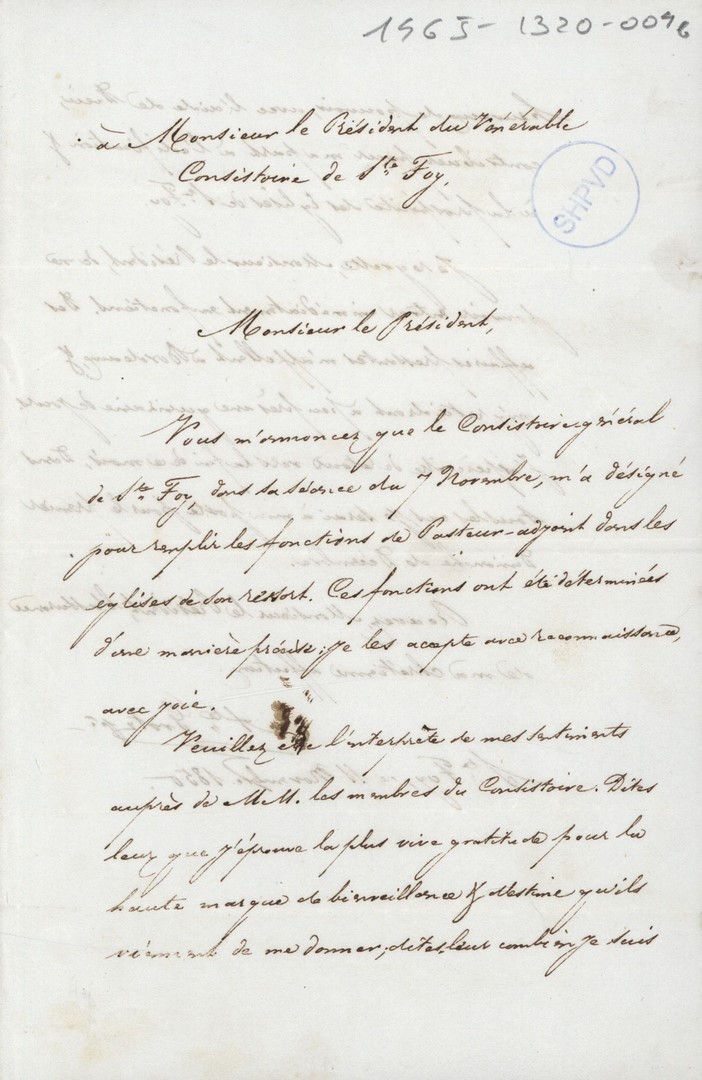 1963-1320-0096
à Monsieur le Président du Vénérable
Consistoire de Ste Foy,
SHPVD
Monsieur le Président,
Vous m'annoncez que le Consistoire général
de Ste Foy, dans sa séance du 7 Novembre, m'a désigné
pour remplir les fonctions de Pasteur-adjoint dans les
églises de son ressort. Ces fonctions ont été déterminées
d'une manière précise; je les accepte avec reconnaissance,
avec joie.
Veuillez être l'interprète de mes sentiments
auprès de M.M. les membres du Consistoire. Dites
leur que j'éprouve la plus vive gratitude pour la
haute marque de bienveillance & d'estime qu'ils
viennent de me donner; dites-leur combien je suis